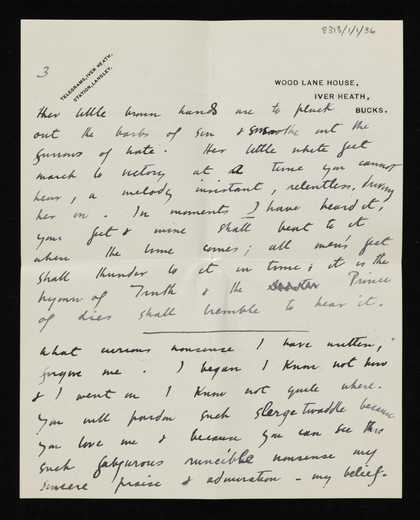 8313/1/1/36
3
TELEGRAMS, IVER HEATH.
STATION, LANGLEY.
WOOD LANE HOUSE,
IVER HEATH,
BUCKS.
Her little brown hands are to pluck
out the barbs of sin & smoothe out the
furrows of hate. Her little white feet
march to victory at a time you cannot
hear, a melody insistant, relentless, driving
her on. In moments I have heard it,
your feet & mine shall beat to it
when the time comes; all men's feet
shall thunder to it in time; it is the
hymn of Truth & the Prince
of dies shall tremble to hear it.
What curious nonsense I have written,
forgive me. I began I know not how
& I went on I know not quite where.
You will pardon such twaddle because
you love me & because you can see thro
such runcible nonsense my
sincere praise & admiration - my belief-